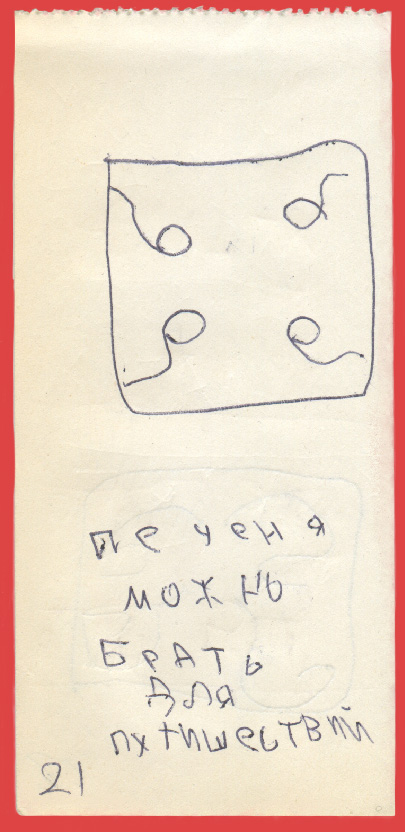 печеня
можно
Брать
для
путишествий
21